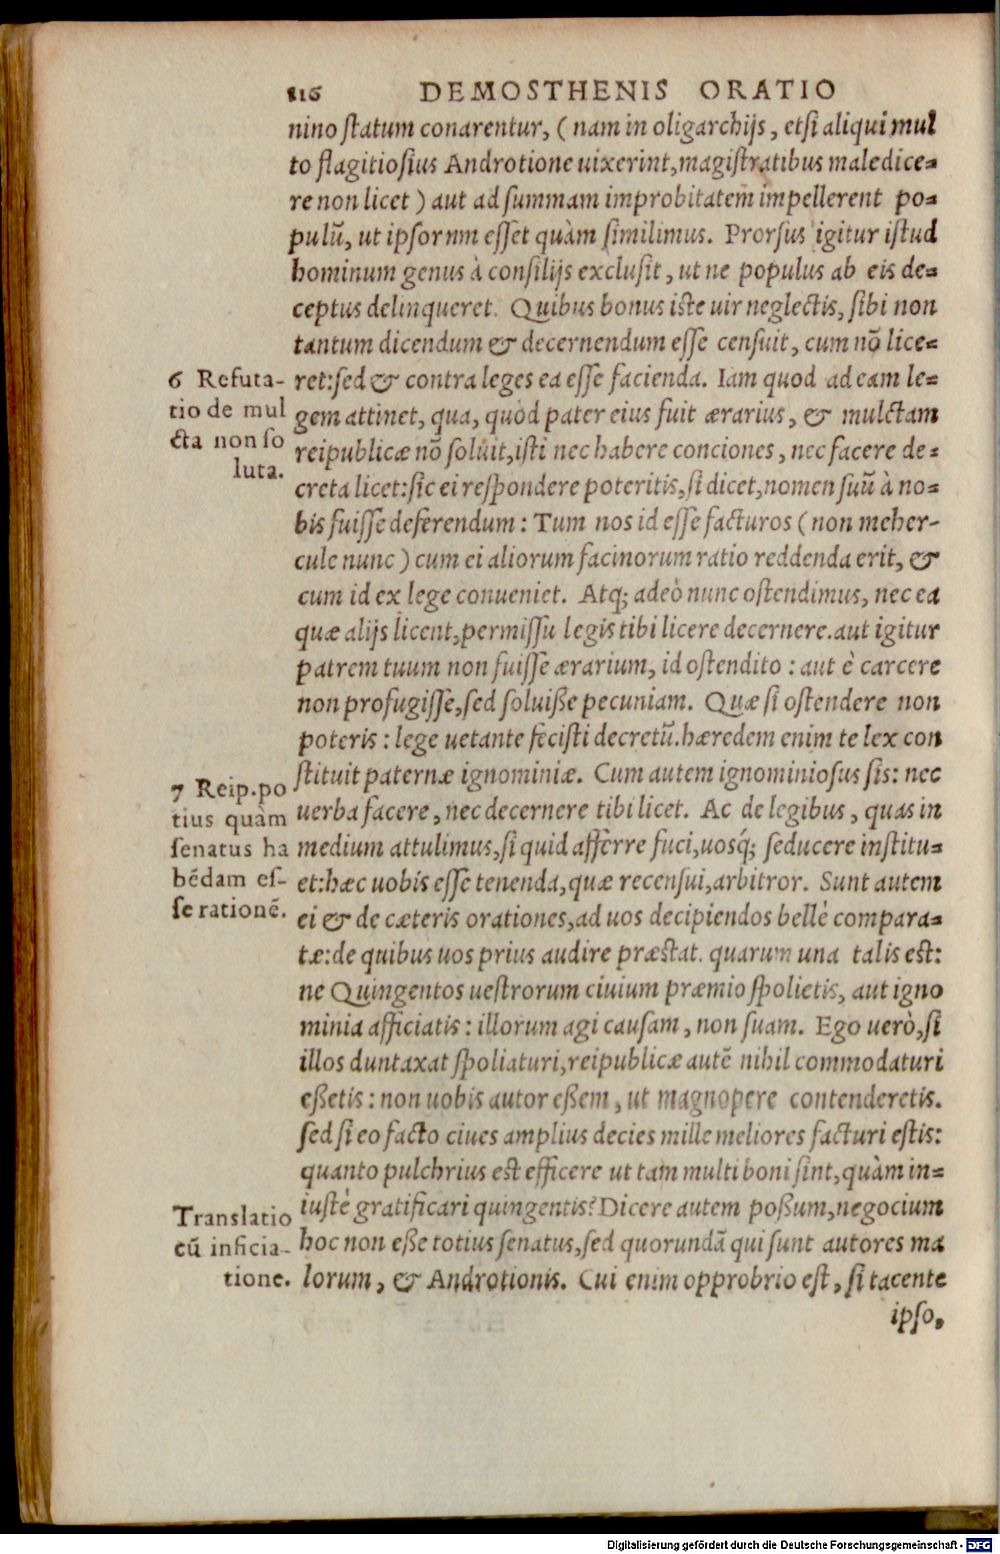 116 DEMOSTHENIS ORATIO
nino ſtatum conarentur, (nam in oligarchijs, etſi aliqui mul
to flagitioſius Androtione uixerint, magiſtratibus maledice=
re non licet) aut ad ſummam improbitatem impellerent po=
pulū, ut ipſorum eſſet quàm ſimilimus. Prorſus igitur iſtud
hominum genus à conſilijs excluſit, ut ne populus ab eis de=
ceptus delinqueret. Quibus bonus iſte uir neglectis, ſibi non
tantum dicendum & decernendum eſſe cenſuit, cum nō lice=
ret: ſed & contra leges ea eſſe facienda. Iam quod ad eam le=
gem attinet, qua, quòd pater eius fuit ærarius, & mulctam
reipublicæ nō ſoluit, iſti nec habere conciones, nec facere de=
creta licet: ſic ei reſpondere poteritis, ſi dicet, nomen ſuū à no=
bis fuiſſe deferendum: Tum nos id eſſe facturos (non meher-
cule nunc) cum ei aliorum facinorum ratio reddenda erit, &
cum id ex lege conueniet. Atq; adeò nunc oſtendimus, nec ea
quæ alijs licent, permiſſu legis tibi licere decernere. aut igitur
patrem tuum non fuiſſe ærarium, id oſtendito: aut è carcere
non profugiſſe, ſed ſoluiße pecuniam. Quæ ſi oſtendere non
poteris: lege uetante feciſti decretū. hæredem enim te lex con
ſtituit paternæ ignominiæ. Cum autem ignominioſus ſis: nec
uerba facere, nec decernere tibi licet. Ac de legibus, quas in
medium attulimus, ſi quid afferre fuci, uosq́; ſeducere inſtitu=
et: hæc uobis eſſe tenenda, quæ recenſui, arbitror. Sunt autem
ei & de cæteris orationes, ad uos decipiendos bellè compara=
tæ: de quibus uos prius audire præſtat. quarum una talis eſt:
ne Quingentos ueſtrorum ciuium præmio ſpolietis, aut igno
minia afficiatis: illorum agi cauſam, non ſuam. Ego uerò, ſi
illos duntaxat ſpoliaturi, reipublicæ autē nihil commodaturi
eßetis: non uobis autor eßem, ut magnopere contenderetis.
ſed ſi eo facto ciues amplius decies mille meliores facturi eſtis:
quanto pulchrius eſt efficere ut tam multi boni ſint, quàm in=
iuſtè gratificari quingentis? Dicere autem poßum, negocium
hoc non eße totius ſenatus, ſed quorundā qui ſunt autores ma
lorum, & Androtionis. Cui enim opprobrio eſt, ſi tacente
ipſo,
6 Refuta-
tio de mul
cta non ſo
luta.
7 Reip. po
tius quàm
ſenatus ha
bēdam eſ-
ſe rationē.
Translatio
cū inficia-
tione.
Digitalisierung gefördert durch die Deutsche Forschungsgemeinschaft - DFG